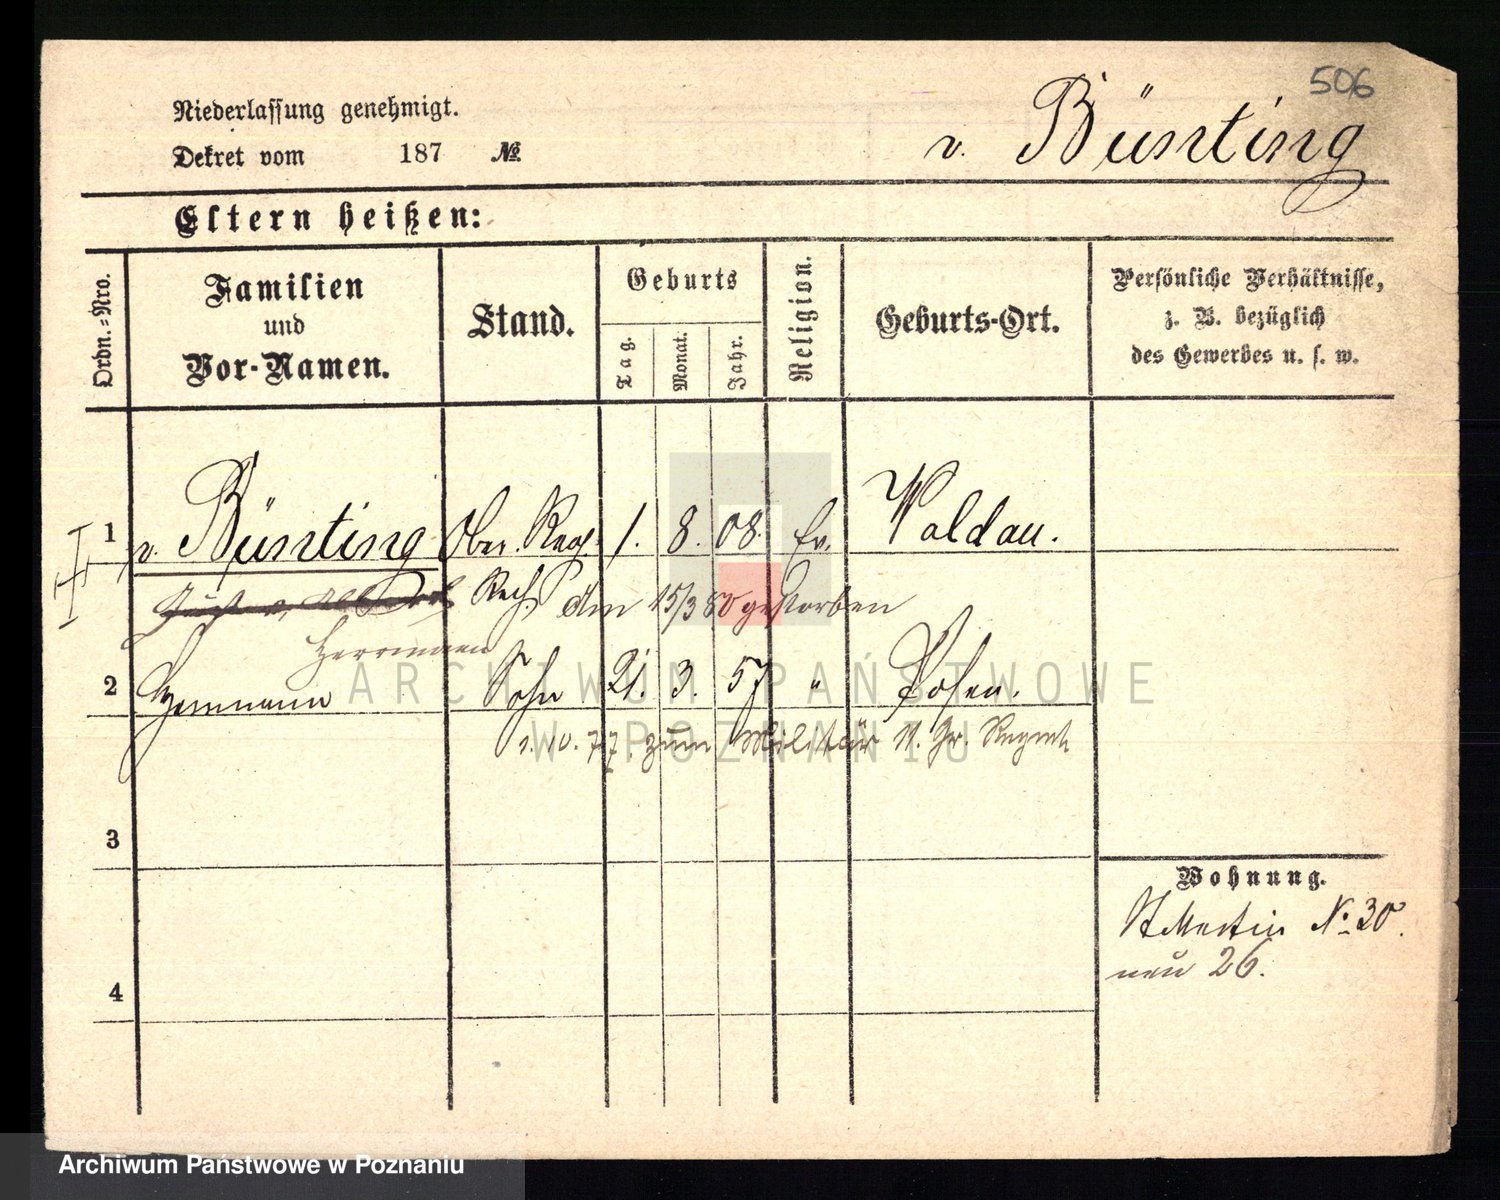 506
Niederlassung genehmigt.
Dekret vom 187 №
v. Bünting
Eltern heißen:
Ordn.-Nro.
Familien und Vor-Namen.
Stand.
Geburts
Tag.
Monat.
Jahr.
Religion.
Geburts-Ort.
Persönliche Verhältnisse,
z. B. bezüglich
des Gewerbes u. s. w.
1 v. Bünting Ober. Reg. 1. 8. 08. Ev. Waldau.
Rath. Am 15/3 80 gestorben
Herrmann
2 Hermann Sohn 21. 3. 57 " Posen.
1. 10. 77. zum Militär 11. Gr. Regmt
3
Wohnung.
St Martin No 30.
neu 26.
4
ARCHIWUM PAŃSTWOWE
W POZNANIU
Archiwum Państwowe w Poznaniu